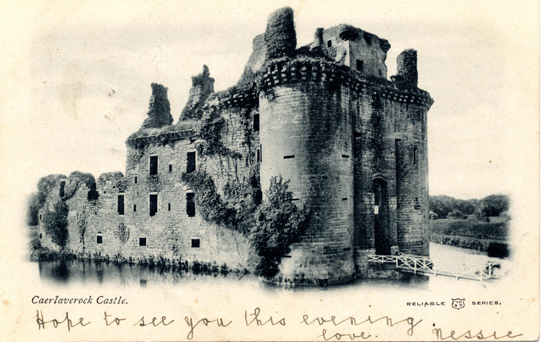 Caerlaverock Castle.
RELIABLE SERIES.
Hope to see you this evening
love. Nessie